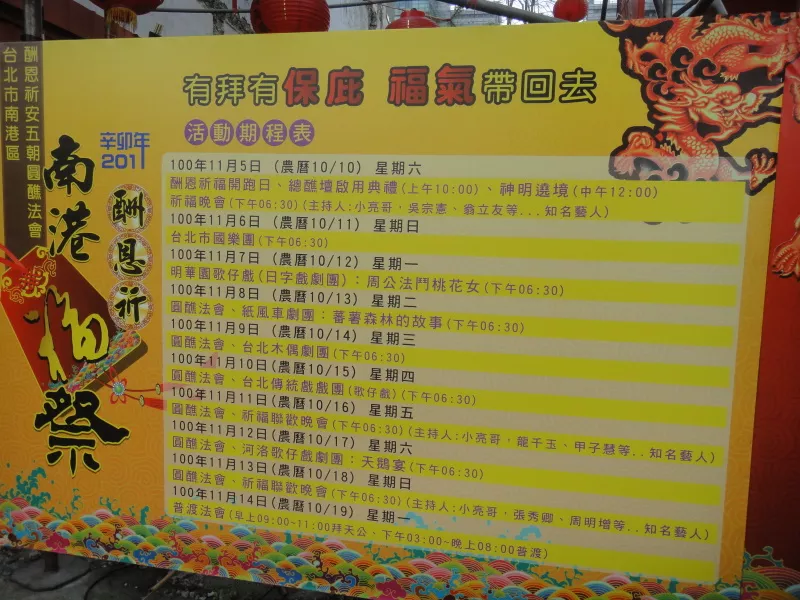 台北市南港區
酬恩祈安五朝圓醮法會
辛卯年
2011
南港福祭
酬恩祈
有拜有保庇 福氣帶回去
活動期程表
100年11月5日 (農曆10/10) 星期六
酬恩祈福開跑日、總醮壇啟用典禮(上午10:00)、神明遶境(中午12:00)
祈福晚會(下午06:30)(主持人:小亮哥，吳宗憲、翁立友等...知名藝人)
100年11月6日 (農曆10/11) 星期日
台北市國樂團(下午06:30)
100年11月7日 (農曆10/12) 星期一
明華園歌仔戲(日字戲劇團)：周公法鬥桃花女(下午06:30)
100年11月8日 (農曆10/13) 星期二
圓醮法會、紙風車劇團：蕃薯森林的故事(下午06:30)
100年11月9日 (農曆10/14) 星期三
圓醮法會、台北木偶劇團(下午06:30)
100年11月10日(農曆10/15) 星期四
圓醮法會、台北傳統戲戲團(歌仔戲)(下午06:30)
100年11月11日(農曆10/16) 星期五
圓醮法會、祈福聯歡晚會(下午06:30)(主持人:小亮哥，龍千玉、甲子慧等..知名藝人)
100年11月12日(農曆10/17) 星期六
圓醮法會、河洛歌仔戲劇團：天鵝宴(下午06:30)
100年11月13日(農曆10/18) 星期日
圓醮法會、祈福聯歡晚會(下午06:30)(主持人:小亮哥，張秀卿、周明增等..知名藝人)
100年11月14日(農曆10/19) 星期一
普渡法會(早上09:00~11:00拜天公、下午03:00~晚上08:00普渡)